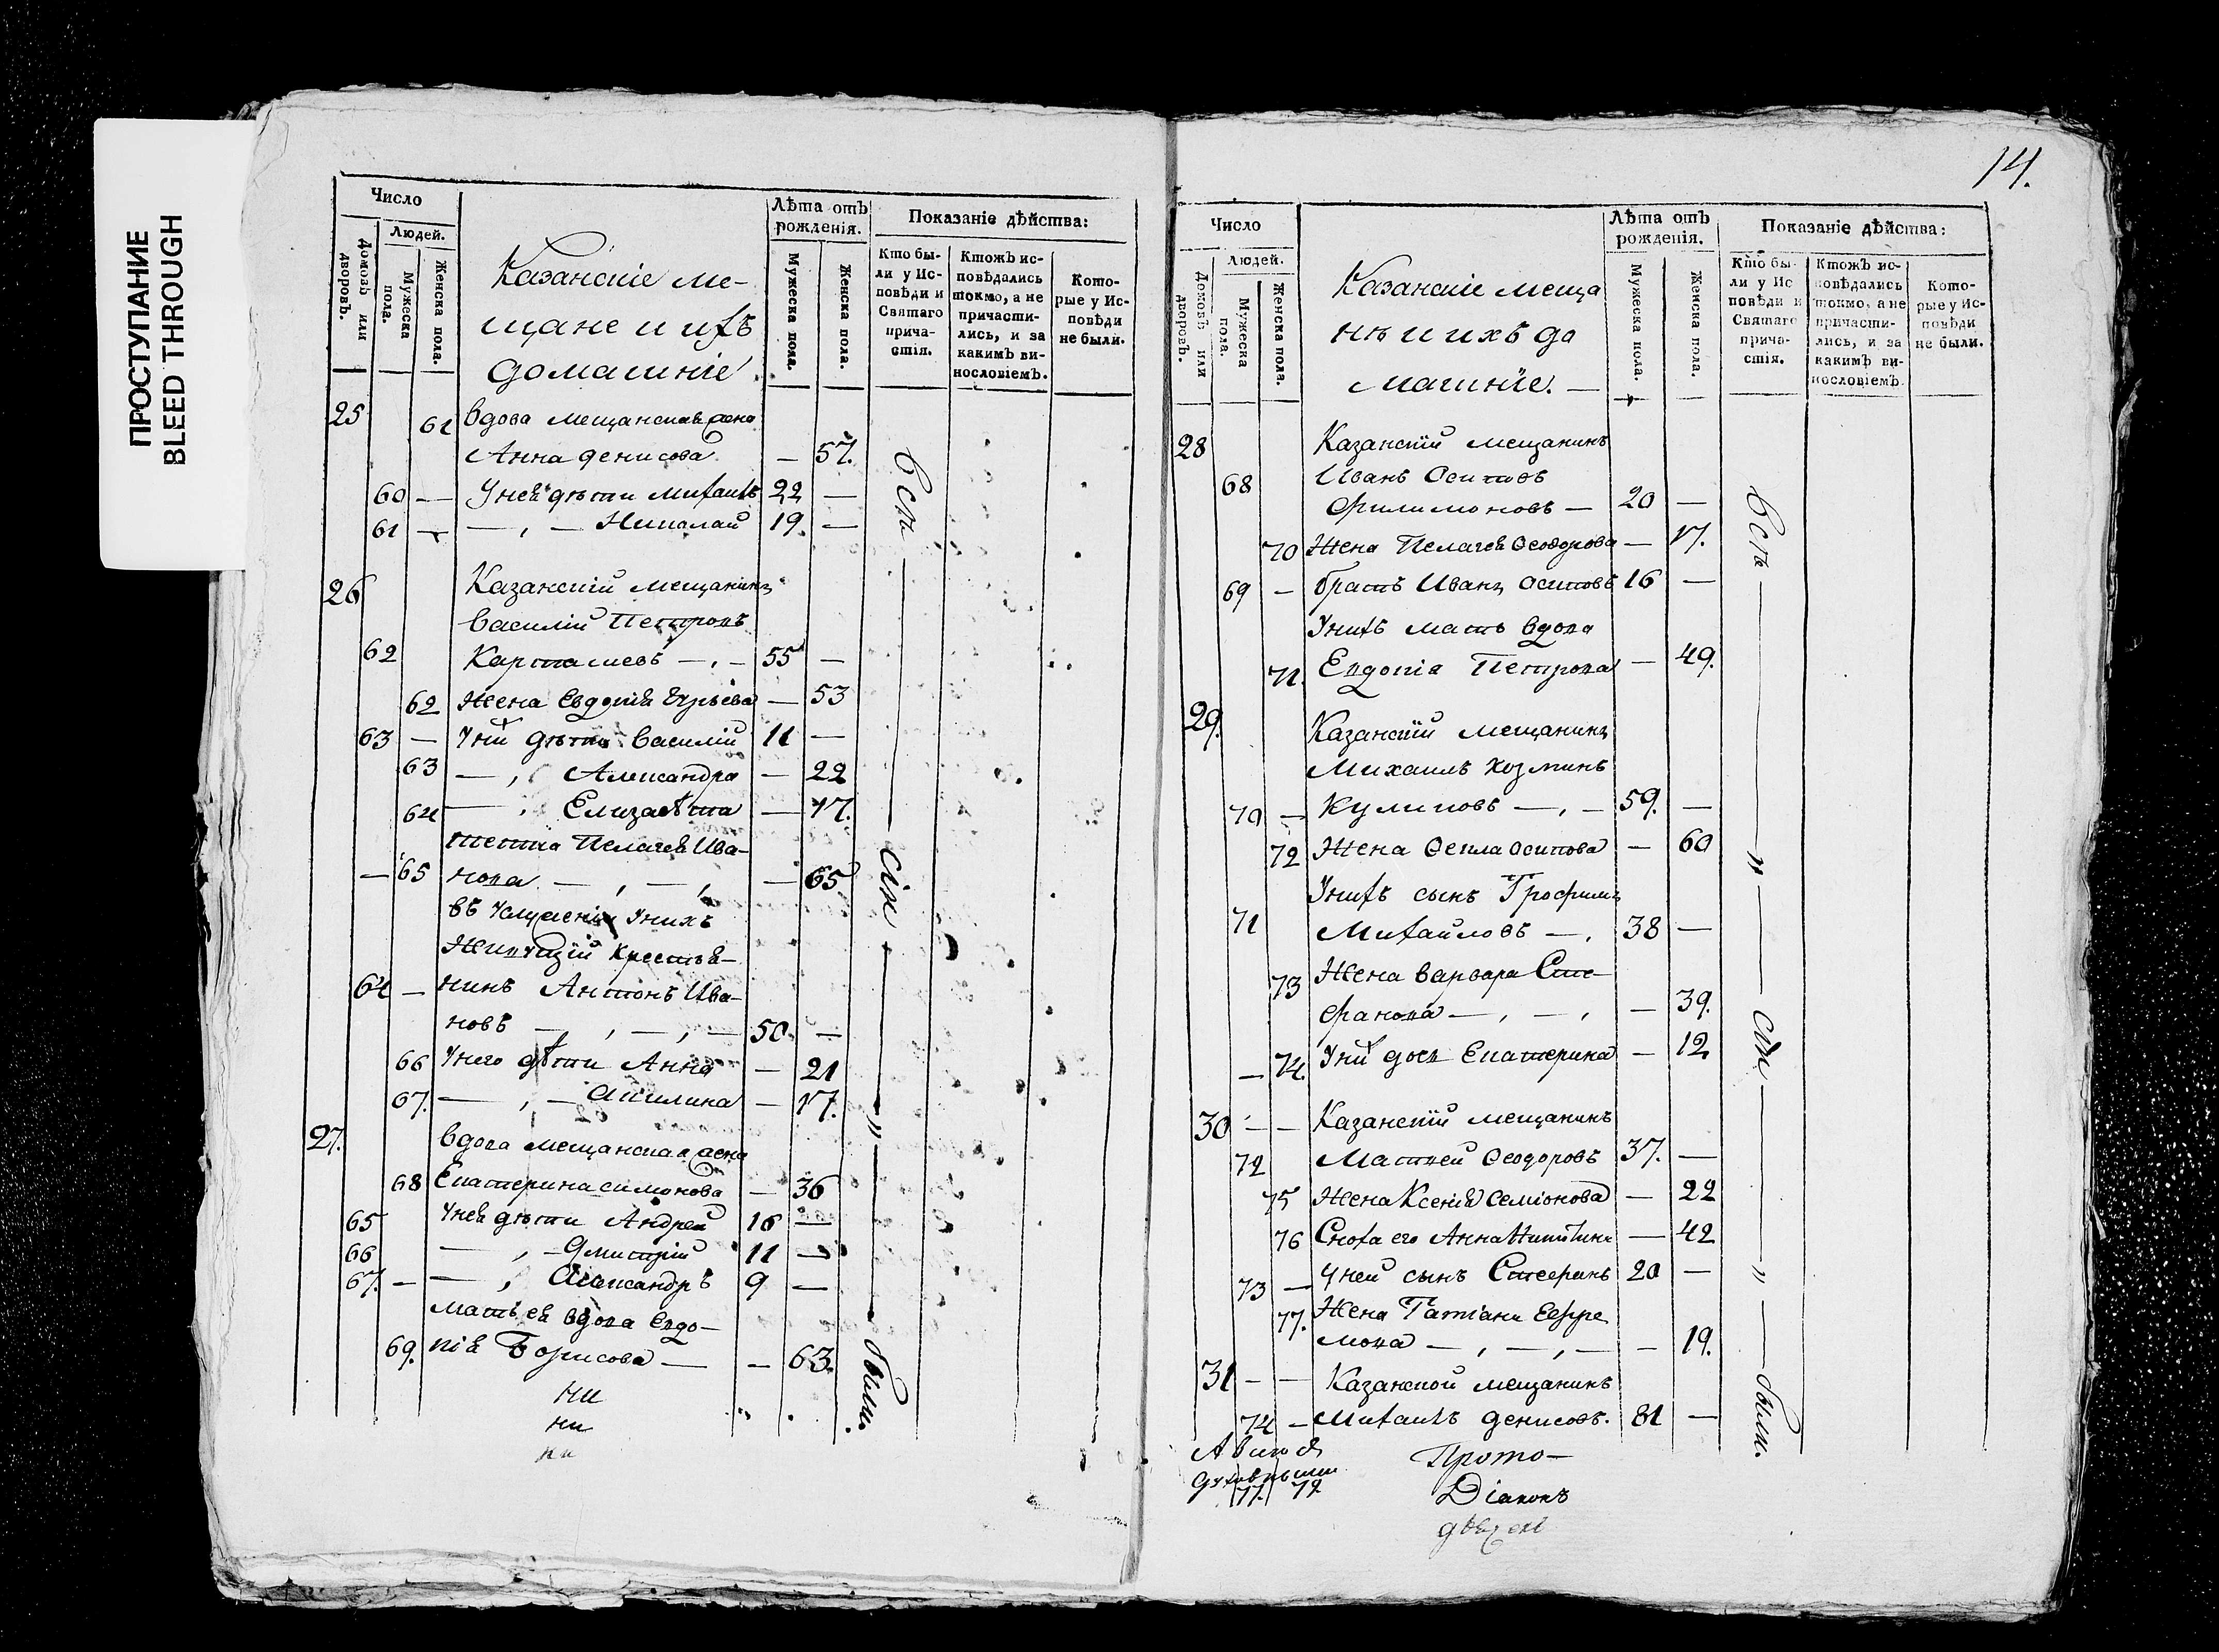 ПРОСТУПАНИЕ
BLEED THROUGH
Число
Людей.
Домовъ или дворовъ.
Мужеска пола.
Женска пола.
Казанскіе ме-
щане и ихъ
домашніе
Лѣта отъ рожденія.
Мужеска пола.
Женска пола.
Показаніе дѣйства:
Кто бы-
ли у Ис-
повѣди и
Святаго
прича-
стія.
Ктожъ ис-
повѣдались
токмо, а не
причасти-
лись, и за
какимъ ви-
нословіемъ.
Кото-
рые у Ис-
повѣди
не были.
25 61 вдова мещанская жена
Анна денисова — 57.
60 — У ней дѣти Михаилъ 22 —
61 — — , — Николай 19. —
26 Казанскій мещанинъ
василій Петровъ
62 Карташевъ — , — 55 —
62 жена Евдокія — 53
63 — У ни дѣти василій 11 —
63 — , Александра — 22
64 — , Елизавѣта — 17.
тетка Пелагея Ива-
— 65 нова — , — , — 65
въ Услуженіи У нихъ
Живущій Крестья-
64 — нинъ Антонъ Ива-
новъ — , — , — 50 —
66 У него дѣти Анна — 21
67. — , — Акилина — 17.
27. вдова мещанская жена
68 Екатерина симонова — 36
65 У ней дѣти Андрей 16 —
66 — , — Дмитрій 11 —
67. — — , Александръ 9 —
мать ея вдова Евдо-
69. кія Борисова — — 63.
всѣ — сіи — " — были.
ни
ни
ни
14.
Число
Людей.
Домовъ или дворовъ.
Мужеска пола.
Женска пола.
Казанскіе меща
не и ихъ до
машніе. —
Лѣта отъ рожденія.
Мужеска пола.
Женска пола.
Показаніе дѣйства:
Кто бы-
ли у Ис-
повѣди и
Святаго
прича-
стія.
Ктожъ ис-
повѣдались
токмо, а не
причасти-
лись, и за
какимъ ви-
нословіемъ.
Кото-
рые у Ис-
повѣди
не были.
28 Казанскій мещанинъ
68 Иванъ Осиповъ
Филимоновъ — 20 —
70 Жена Пелагея Ѳеодорова — 17.
69 — братъ Иванъ Осиповъ 16 —
У нихъ мать вдова
71. Евдокіа Петрова — 49.
29. Казанскій мещанинъ
Михаилъ Козминъ
70 — Куликовъ — , — 59. —
72 Жена Ѳекла Осипова — 60
У нихъ сынъ Трофимъ
71 Михайловъ — , 38 —
73 Жена варвара Сте-
фанова — , — , — 39.
— 74. У ни дочь Екатерина — 12
30 — — Казанскій мещанинъ
72 Матвей Ѳеодоровъ 37. —
75 Жена Ксенія Семіонова — 22
76 Сноха его Анна Никитина — 42
73 — У ней сынъ 20 —
77. Жена Татіана Ефре
мова — , — , — — 19.
31 — — Казанской мещанинъ
74 — Михаилъ денисовъ. 81 —
всѣ — " — сіи — " — были.
77. 79.
Прото-
Діаконъ